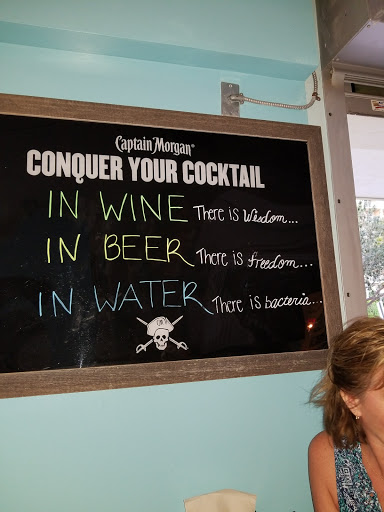 Captain Morgan®
CONQUER YOUR COCKTAIL
IN WINE There is Wisdom...
IN BEER There is freedom...
IN WATER There is bacteria...